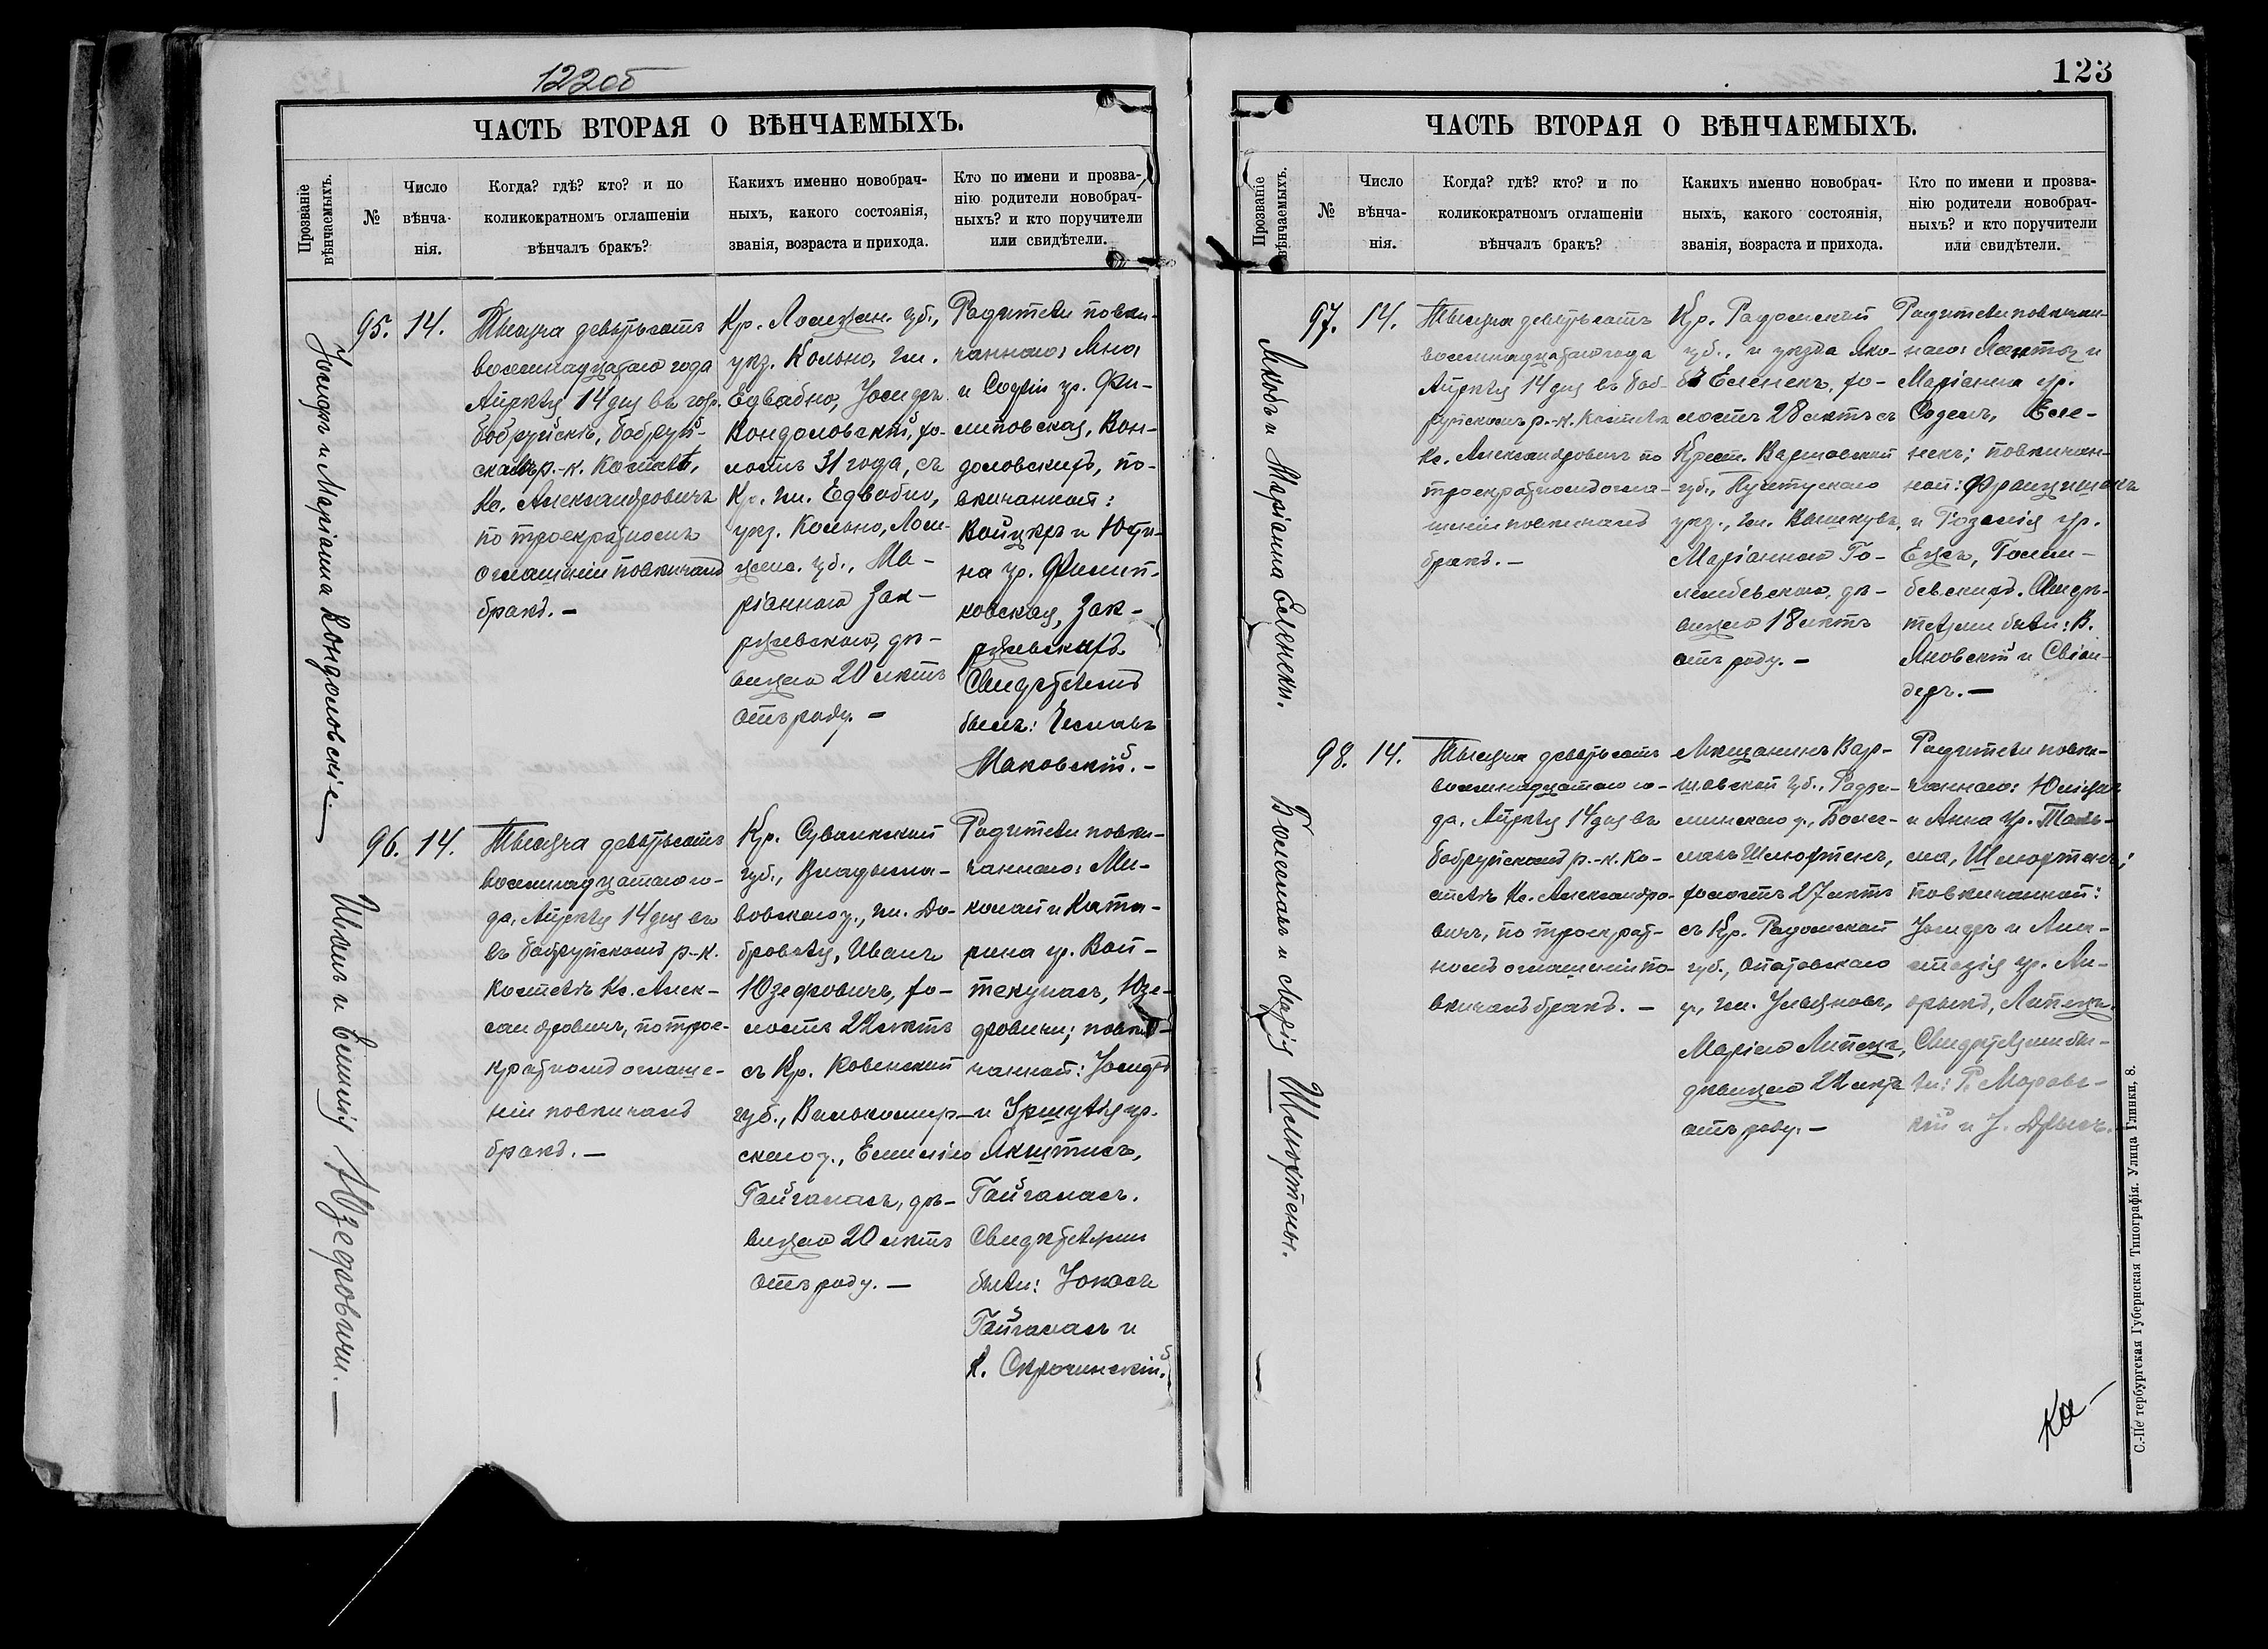 122об
ЧАСТЬ ВТОРАЯ О ВѢНЧАЕМЫХЪ.
Прозваніе
вѣнчаемыхъ.
№
Число
вѣнча-
нія.
Когда? гдѣ? кто? и по
коликократномъ оглашеніи
вѣнчалъ бракъ?
Какихъ именно новобрач-
ныхъ, какого состоянія,
званія, возраста и прихода.
Кто по имени и прозва-
нію родители новобрач-
ныхъ? и кто поручители
или свидѣтели.
Іосифъ и Маріанна Кондоловскіе.
95. 14.
Тысяча девятьсотъ
восемнадцатаго года
Апрѣля 14 дня въ гор.
Бобруйскѣ, Бобруй-
скомъ р.-к. Костелѣ,
Кс. Александровичъ
по троекратномъ
оглашеніи повѣнчалъ
бракъ. —
Кр. Ломжин. губ.,
уѣз. Кольно, гм.
Едвабно, Іосифъ
Кондоловскій, хо-
лостъ 31 года, съ
Кр. гм. Едвабно,
уѣз. Кольно, Лом-
жин. губ., Ма-
ріанною Зак-
ржевскою, дѣ-
вицею 20 лѣтъ
отъ роду. —
Родители повѣн-
чаннаго: Яна
и Софіи ур. Фи-
липовская, Кон-
доловскихъ, по-
вѣнчанной:
Войцѣхъ и Юфи-
на ур. Филип-
ковская, Зак-
ржевскихъ.
Свидѣтелемъ
былъ: Чеславъ
Маковскій. —
Иванъ и Емилія Юзефовичи. —
96. 14.
Тысяча девятьсотъ
восемнадцатаго го-
да, Апрѣля 14 дня въ
въ Бобруйскомъ р.-к.
Костелѣ Кс. Алек-
сандровичъ, по трое-
кратномъ оглаше-
ніи повѣнчалъ
бракъ. —
Кр. Сувалкской
губ., Владысла-
вовскаго у., гм. До-
бровля, Иванъ
Юзефовичъ, хо-
лостъ 22 лѣтъ
съ Кр. Ковенской
губ., Вилькомир-
скаго у., Емиліею
Гайгаласъ, дѣ-
вицею 20 лѣтъ
отъ роду. —
Родители повѣн-
чаннаго: Ми-
колай и Ката-
рина ур. Вой-
текунасъ, Юзе-
фовичи; повѣн-
чанной: Іосифъ
и Уршуля ур.
Якштисъ,
Гайгаласъ.
Свидѣтелями
были: Іонасъ
Гайгаласъ и
К. Скрочинскій.
123
ЧАСТЬ ВТОРАЯ О ВѢНЧАЕМЫХЪ.
Прозваніе
вѣнчаемыхъ.
№
Число
вѣнча-
нія.
Когда? гдѣ? кто? и по
коликократномъ оглашеніи
вѣнчалъ бракъ?
Какихъ именно новобрач-
ныхъ, какого состоянія,
званія, возраста и прихода.
Кто по имени и прозва-
нію родители новобрач-
ныхъ? и кто поручители
или свидѣтели.
Якобъ и Маріанна Еленеки.
97. 14.
Тысяча девятьсотъ
восемнадцатаго года
Апрѣля 14 дня въ Боб-
руйскомъ р.-к. Костелѣ
Кс. Александровичъ по
троекратномъ огла-
шеніи повѣнчалъ
бракъ. —
Кр. Радомской
губ., и уѣзда Яко-
бъ Еленекъ, хо-
лостъ 28 лѣтъ съ
Крест. Варшавской
губ., Пултускаго
уѣз., гм. Вышкувъ,
Маріанною Го-
лембевскою, дѣ-
вицею 18 лѣтъ
отъ роду. —
Родители повѣнчан-
наго: и
Маріанна ур.
Еле-
некъ; повѣнчан-
ной: Францишекъ
и Розалія ур.
Голем-
бевскихъ. Свидѣ-
телями были: В.
Яновскій и Свіон-
деръ. —
Болеславъ и Марія Шлюфтены.
98. 14.
Тысяча девятьсотъ
восемнадцатаго го-
да, Апрѣля 14 дня въ
Бобруйскомъ р.-к. Ко-
стелѣ Кс. Александро-
вичъ, по троекрат-
номъ оглашеніи по-
вѣнчалъ бракъ. —
Мѣщанинъ Вар-
шавской губ., Радзи-
минскаго у., Болес-
лавъ Шлюфтенъ,
холостъ 27 лѣтъ
съ Кр. Радомской
губ., Опатовскаго
у., гм.
Маріею Липецъ,
дѣвицею 22 лѣтъ
отъ роду. —
Родители повѣн-
чаннаго: Юліанъ
и Анна ур.
Шлюфтенъ;
повѣнчанной:
Іосифъ и Ана-
стазія ур.
Липецъ.
Свидѣтелями бы-
ли: Р.
и І.
С.-Петербургская Губернская Типографія. Улица Глинки, 8.